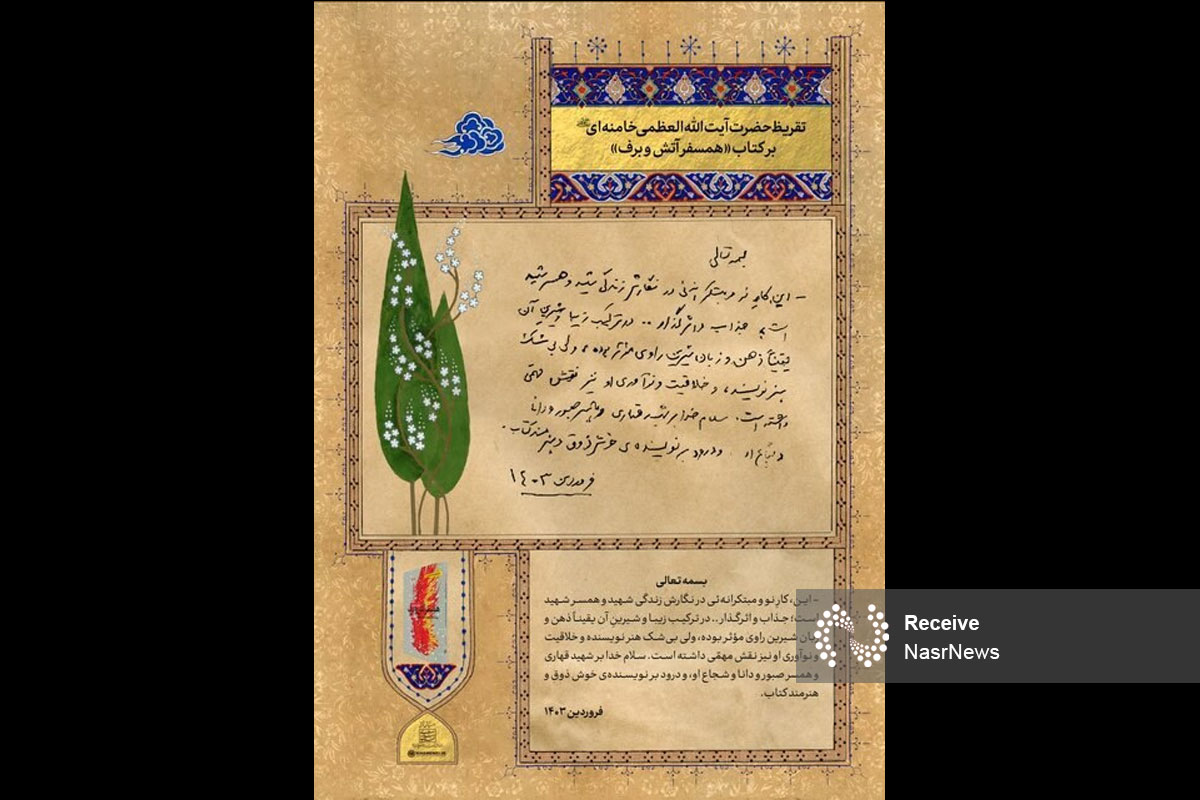 تقریظ حضرت آیت الله العظمی خامنه‌ای
بر کتاب «همسفر آتش و برف»
بسمه تعالی
- این کارِ نو و مبتکرانه‌ئی در نگارش زندگی شهید و همسر شهید
است؛ جذاب و اثرگذار .. در ترکیب زیبا و شیرین آن
یقیناً ذهن و زبان شیرین راوی مؤثر بوده، ولی بی‌شک
هنر نویسنده، و خلاقیت و نوآوری او نیز نقش مهمّی
داشته است. سلام خدا بر شهید قهاری و همسر صبور و دانا
و شجاع او. و درود بر نویسنده‌ی خوش ذوق و هنرمند کتاب.
فروردین ۱۴۰۳
بسمه تعالی
- این، کارِ نو و مبتکرانه‌ئی در نگارش زندگی شهید و همسر شهید
است؛ جذاب و اثرگذار.. در ترکیب زیبا و شیرینِ آن یقیناً ذهن و
زبان شیرین راوی مؤثر بوده، ولی بی‌شک هنر نویسنده و خلاقیت
و نوآوری او نیز نقش مهمّی داشته است. سلام خدا بر شهید قهاری
و همسر صبور و دانا و شجاع او، و درود بر نویسنده‌ی خوش ذوق و
هنرمند کتاب.
فروردین ۱۴۰۳
Receive
NasrNews